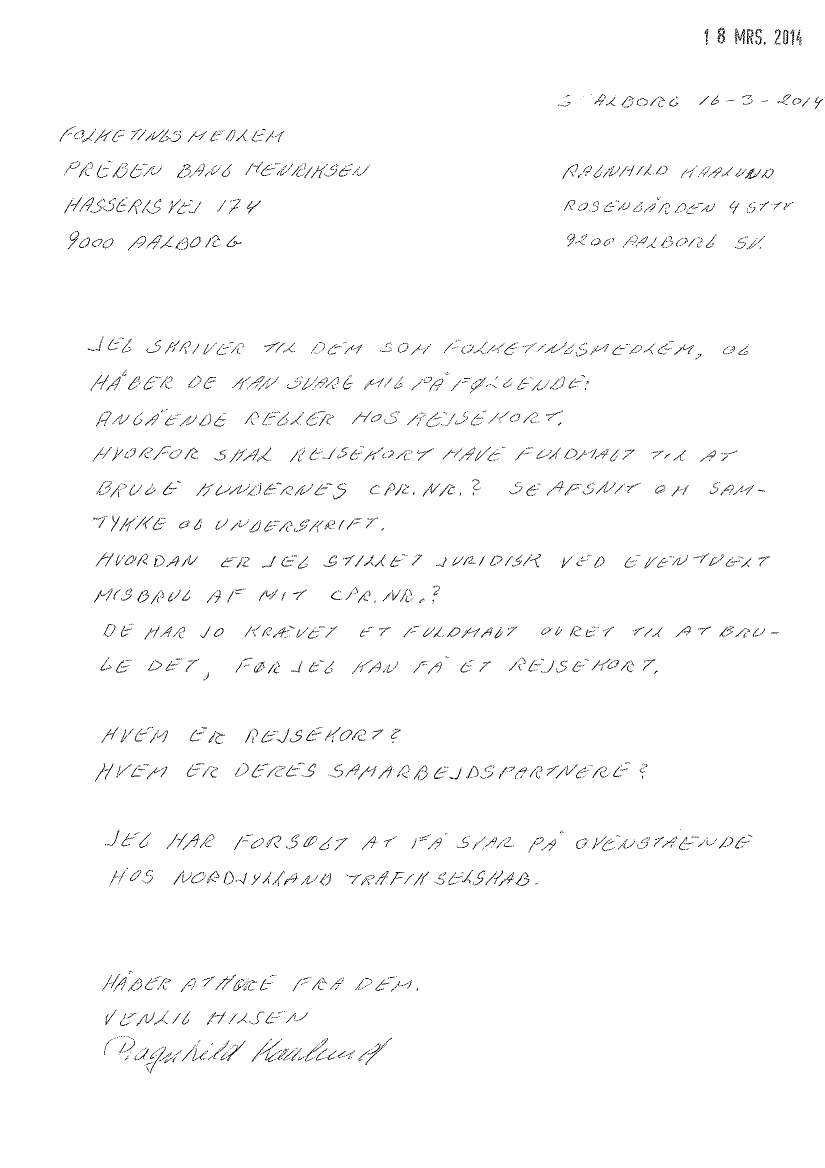 18 MRS. 2014
S AALBORG 16-3-2014
FOLKETINGSMEDLEM
PREBEN BANG HENRIKSEN
HASSERISVEJ 174
9000 AALBORG
RAGNHILD KAALUND
ROSENGÅRDEN 4
9200 AALBORG SV.
JEG SKRIVER TIL DEM SOM FOLKETINGSMEDLEM, OG
HÅBER DE KAN SVARE MIG PÅ FØLGENDE:
ANGÅENDE REGLER HOS REJSEKORT.
HVORFOR SKAL REJSEKORT HAVE FULDMAGT TIL AT
BRUGE KUNDERNES CPR.NR.? SE AFSNIT OM SAM-
TYKKE OG UNDERSKRIFT.
HVORDAN ER JEG STILLET JURIDISK VED EVENTUELT
MISBRUG AF MIT CPR.NR.?
DE HAR JO KRÆVET ET FULDMAGT OG RET TIL AT BRU-
GE DET, FØR JEG KAN FÅ ET REJSEKORT.
HVEM ER REJSEKORT?
HVEM ER DERES SAMARBEJDSPARTNERE?
JEG HAR FORSØGT AT FÅ SVAR PÅ OVENSTÅENDE
HOS NORDJYLLAND TRAFIKSELSKAB.
HÅBER AT HØRE FRA DEM.
VENLIG HILSEN
Ragnhild Kaalund